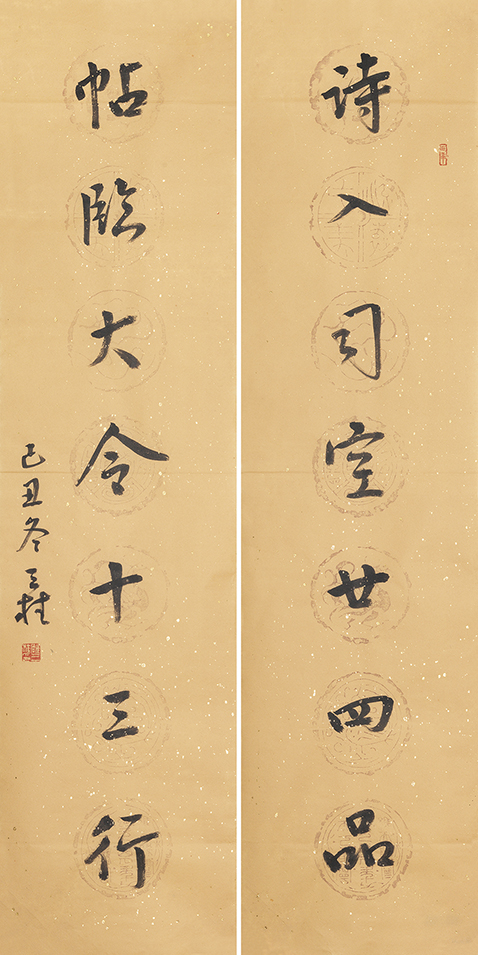 詩入司空廿四品
帖臨大令十三行
己丑冬